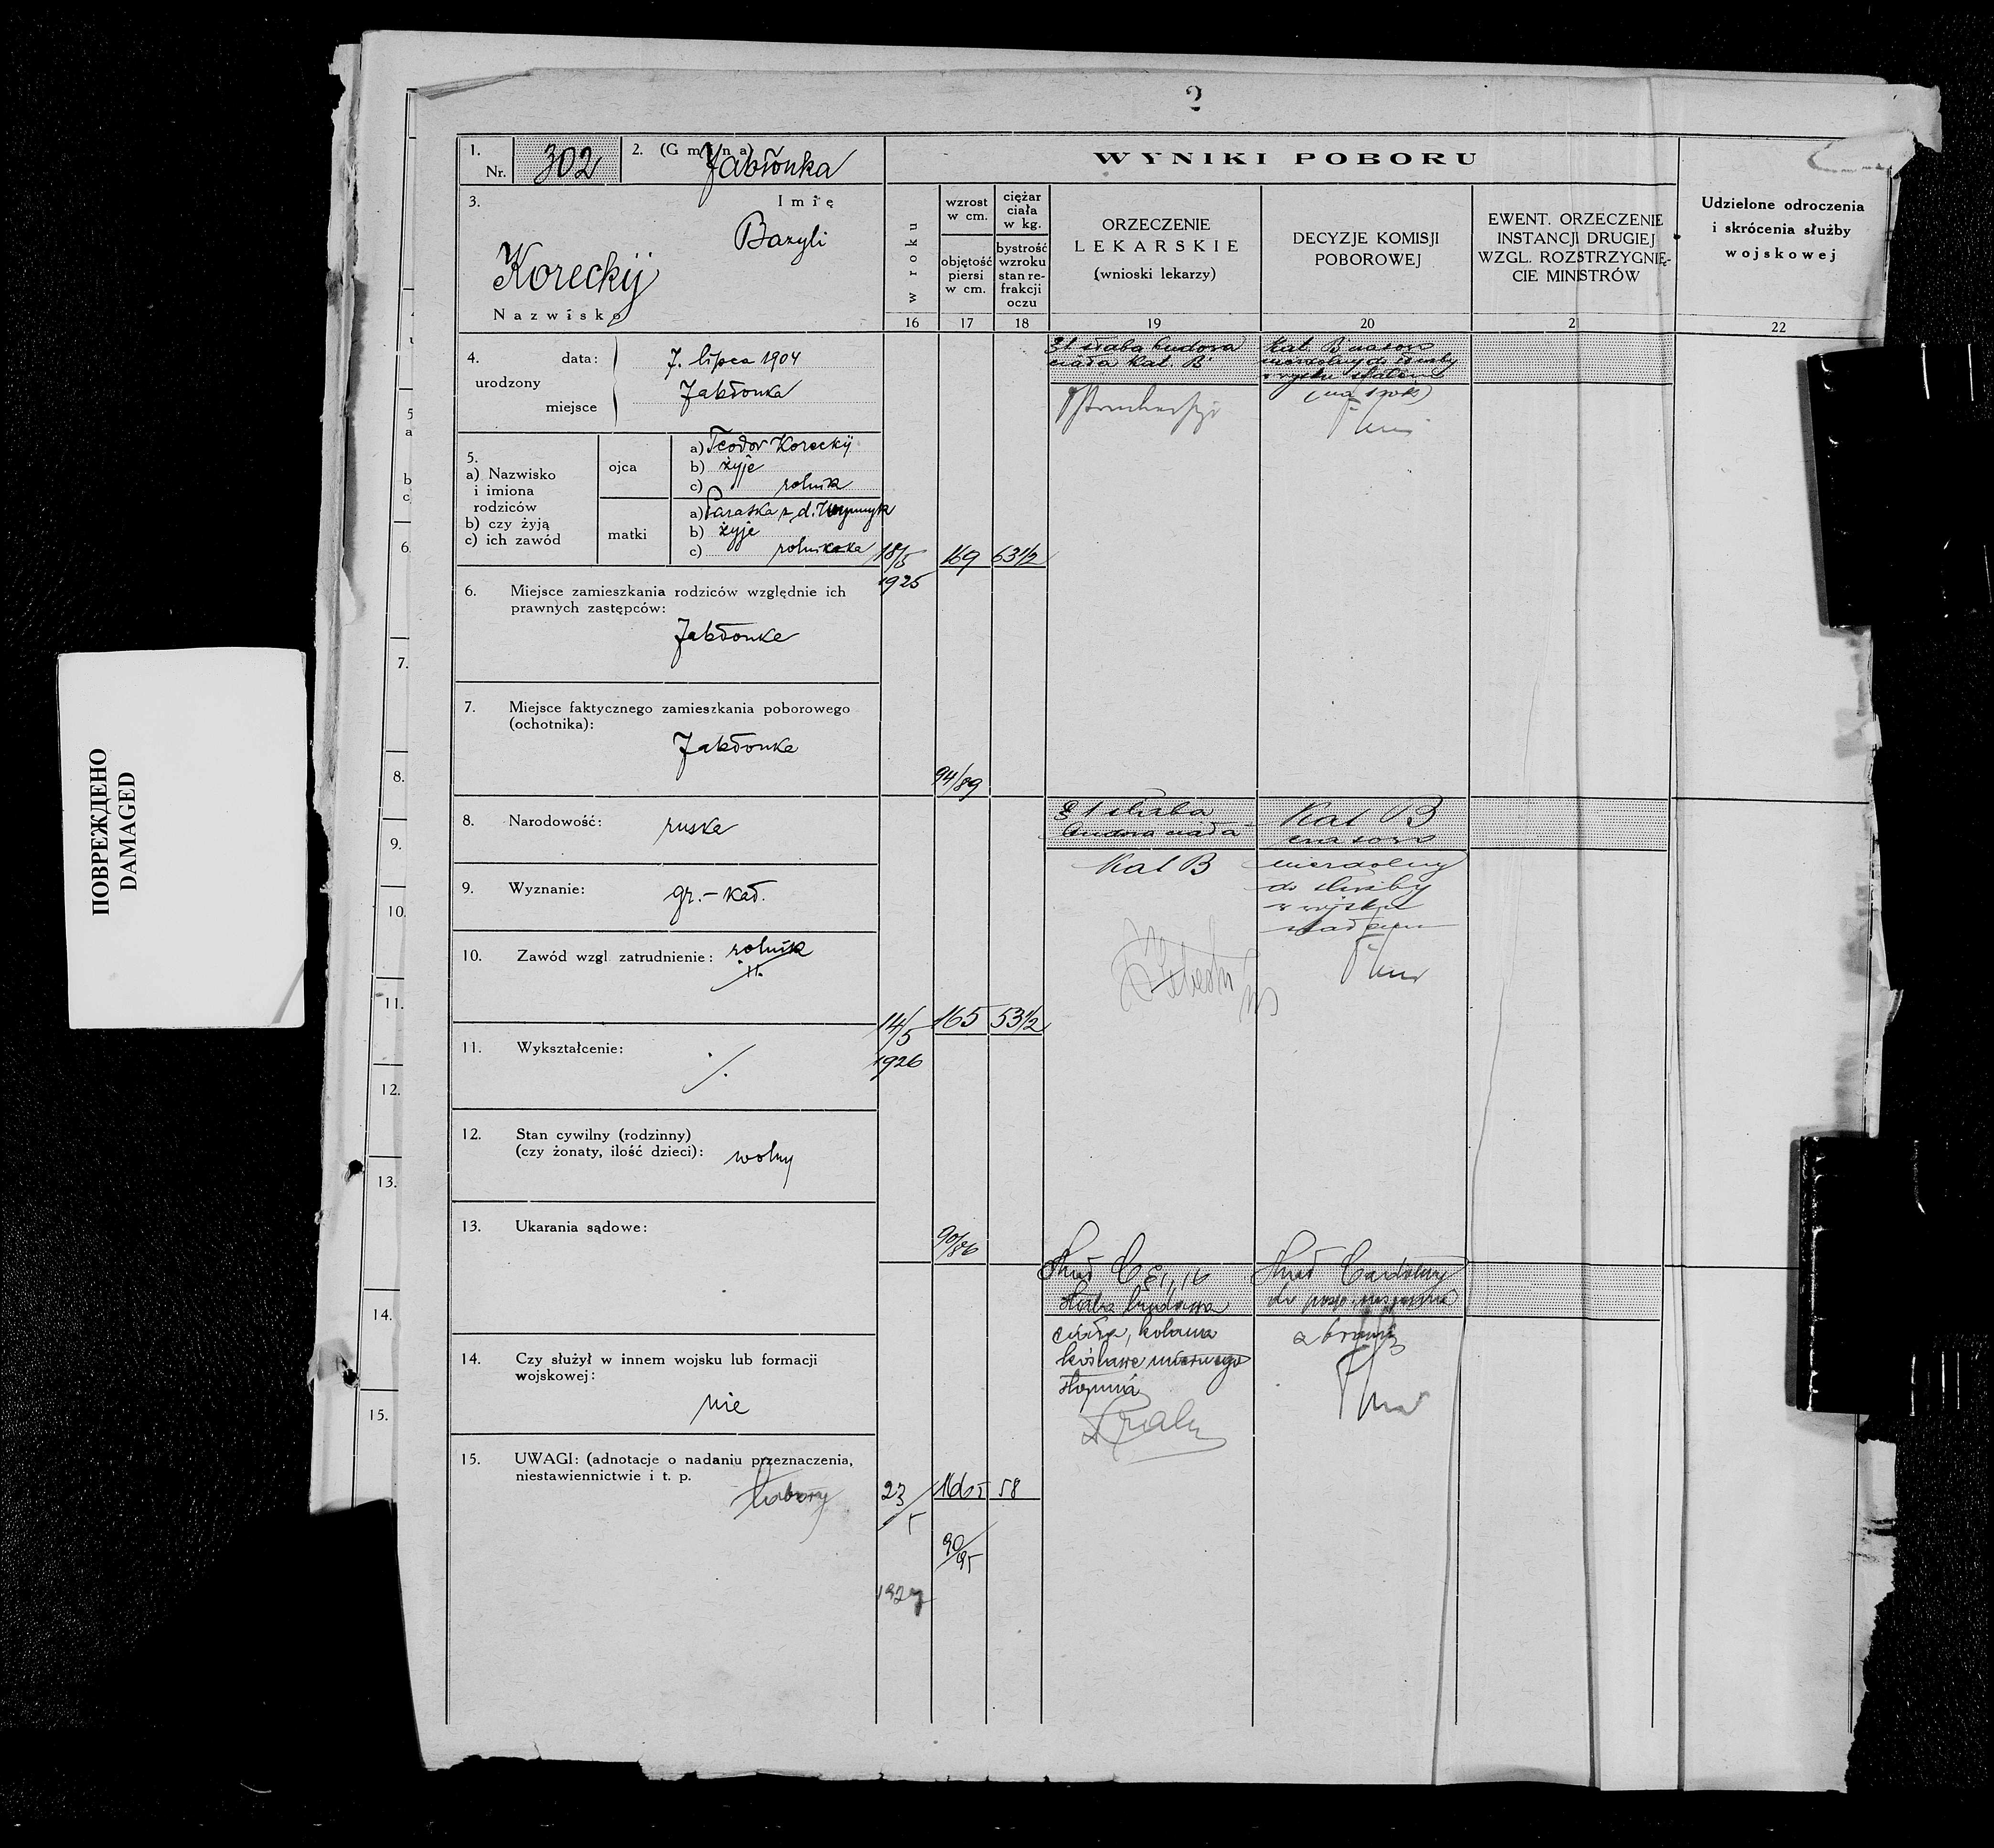 2
1.
Nr. 302
2. (Gmina)
Jabłonka
WYNIKI POBORU
3.
Imię
Bazyli
Koreckij
Nazwisko
w roku
wzrost
w cm.
objętość
piersi
w cm.
ciężar
ciała
w kg.
bystrość
wzroku
stan re-
frakcji
oczu
ORZECZENIE
LEKARSKIE
(wnioski lekarzy)
DECYZJE KOMISJI
POBOROWEJ
EWENT. ORZECZENIE
INSTANCJI DRUGIEJ
WZGL. ROZSTRZYGNIĘ-
CIE MINISTRÓW
Udzielone odroczenia
i skrócenia służby
wojskowej
16
17
18
19
20
21
22
4.
data:
7. lipca 1904
urodzony
miejsce
Jabłonka
5.
a) Nazwisko
i imiona
rodziców
b) czy żyją
c) ich zawód
ojca
a) Teodor Koreckij
b) żyje
c) rolnik
matki
a) Paraska z d.
b) żyje
c)
6. Miejsce zamieszkania rodziców względnie ich
prawnych zastępców:
Jabłonka
7. Miejsce faktycznego zamieszkania poborowego
(ochotnika):
Jabłonka
8. Narodowość: ruska
9. Wyznanie: gr.-kat.
10. Zawód wzgl. zatrudnienie: rolnik
11. Wykształcenie: ./.
12. Stan cywilny (rodzinny)
(czy żonaty, ilość dzieci): wolny
13. Ukarania sądowe:
14. Czy służył w innem wojsku lub formacji
wojskowej:
nie
15. UWAGI: (adnotacje o nadaniu przeznaczenia,
niestawiennictwie i t. p.
18/5
1925
169
63 1/2
94/89
słaba budowa
ciała Kat. B
Kat. B
niezdolny do służby
14/5
1926
165
53 1/2
90/86
słaba
budowa ciała
Kat B
Kat B
niezdolny
do służby
w wojsku
stałem
23/5
1927
165
58
90/95
słaba budowa
ciała, kolana
koślawe miernego
stopnia
z bronią
5
a
b
c
6.
7.
8.
9.
10.
11.
12.
13.
14.
15.
ПОВРЕЖДЕНО
DAMAGED